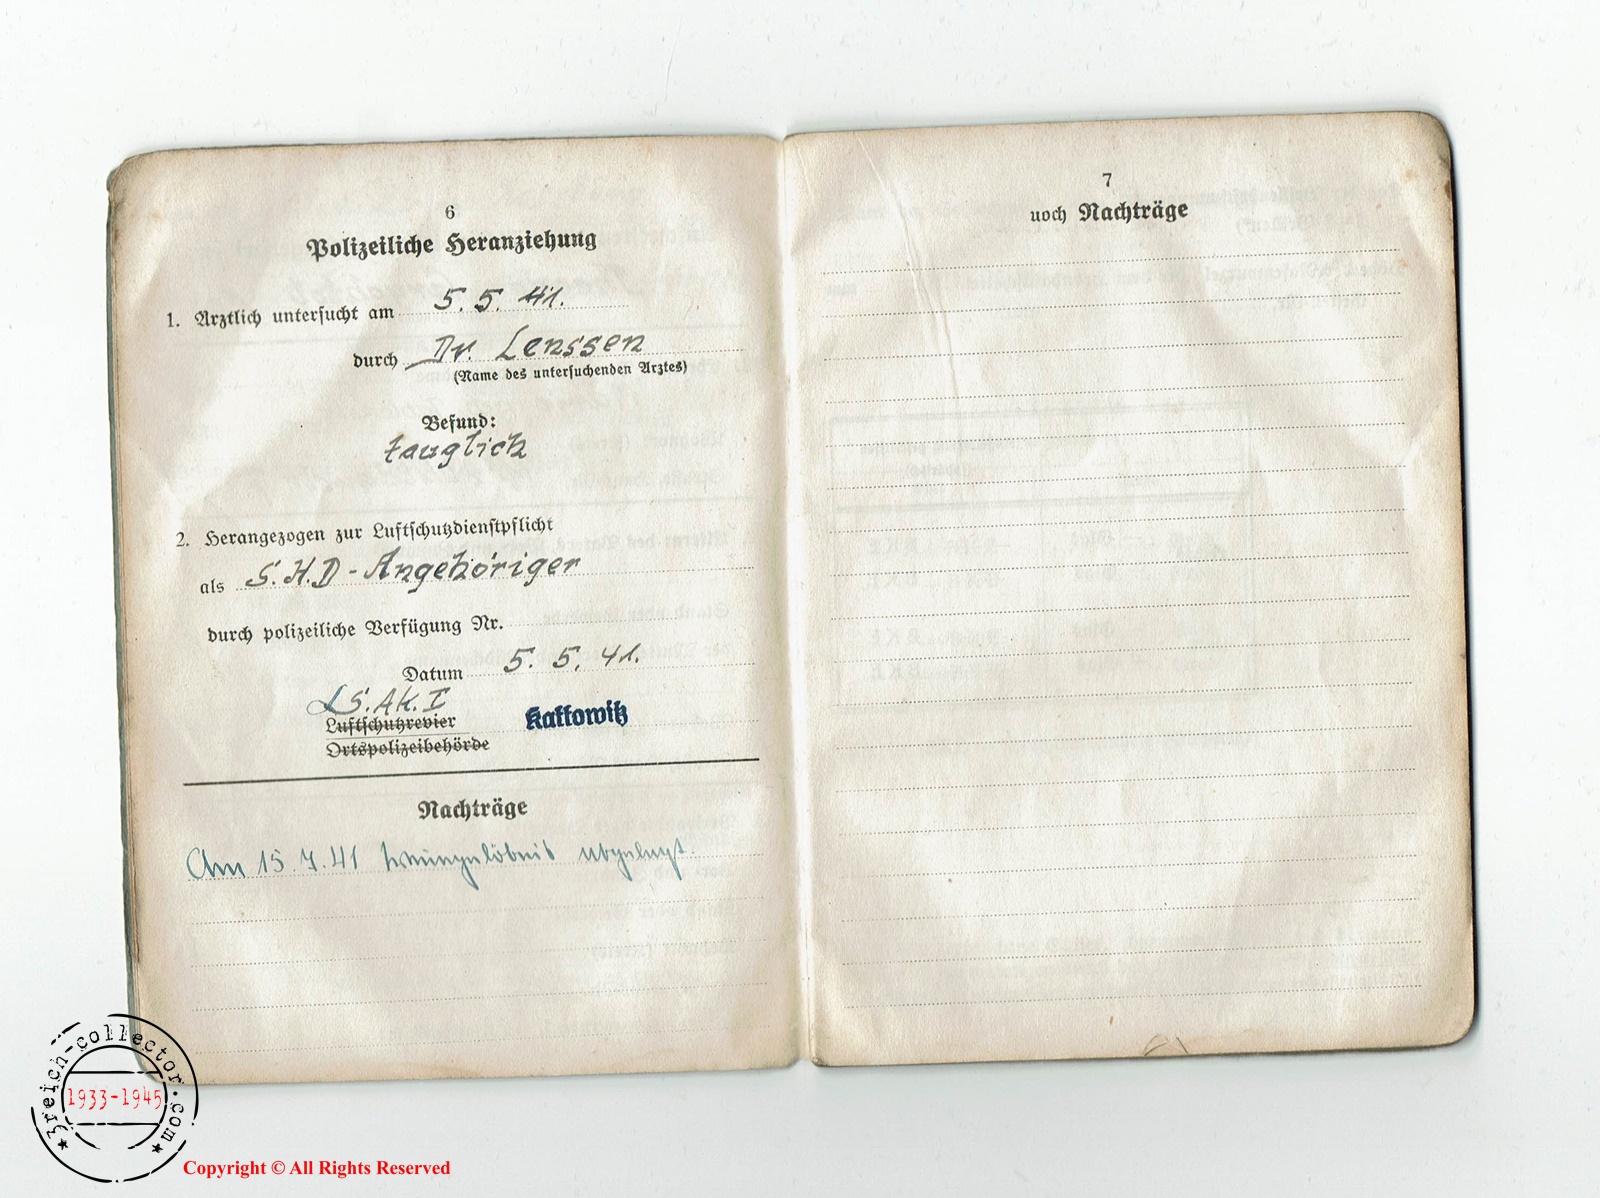 6
Polizeiliche Heranziehung
1. Ärztlich untersucht am 5. 5. 41.
durch Dr. Lenssen
(Name des untersuchenden Arztes)
Befund:
tauglich
2. Herangezogen zur Luftschutzdienstpflicht
als S.H.D-Angehöriger
durch polizeiliche Verfügung Nr.
Datum 5. 5. 41.
LS.Ak. I
Luftschutzrevier
Kattowitz
Ortspolizeibehörde
Nachträge
Am 15.7.41 Treuegelöbnis abgelegt.
7
noch Nachträge
3reich-collector.com
1933-1945
Copyright © All Rights Reserved